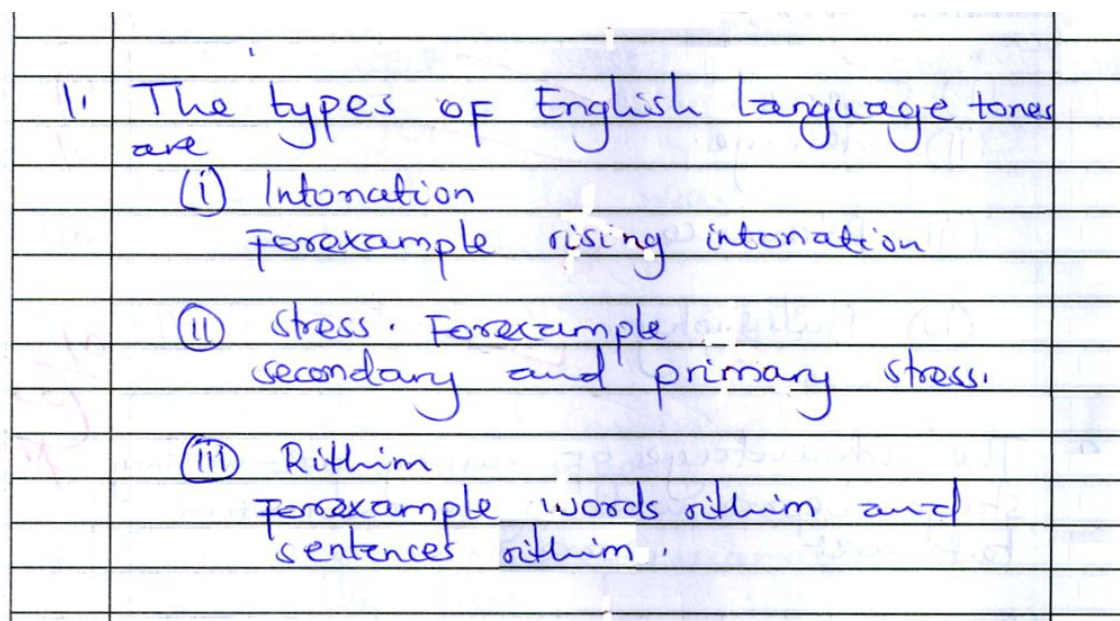 1. The types of English language tones
are
(i) Intonation
Forexample rising intonation
(ii) Stress. Forexample
secondary and primary stress.
(iii) Rithim
Forexample words rithim and
sentences rithim.